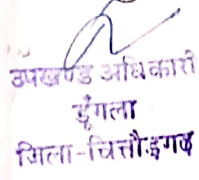 उपखण्ड अधिकारी
डूँगला
जिला-चित्तौड़गढ़